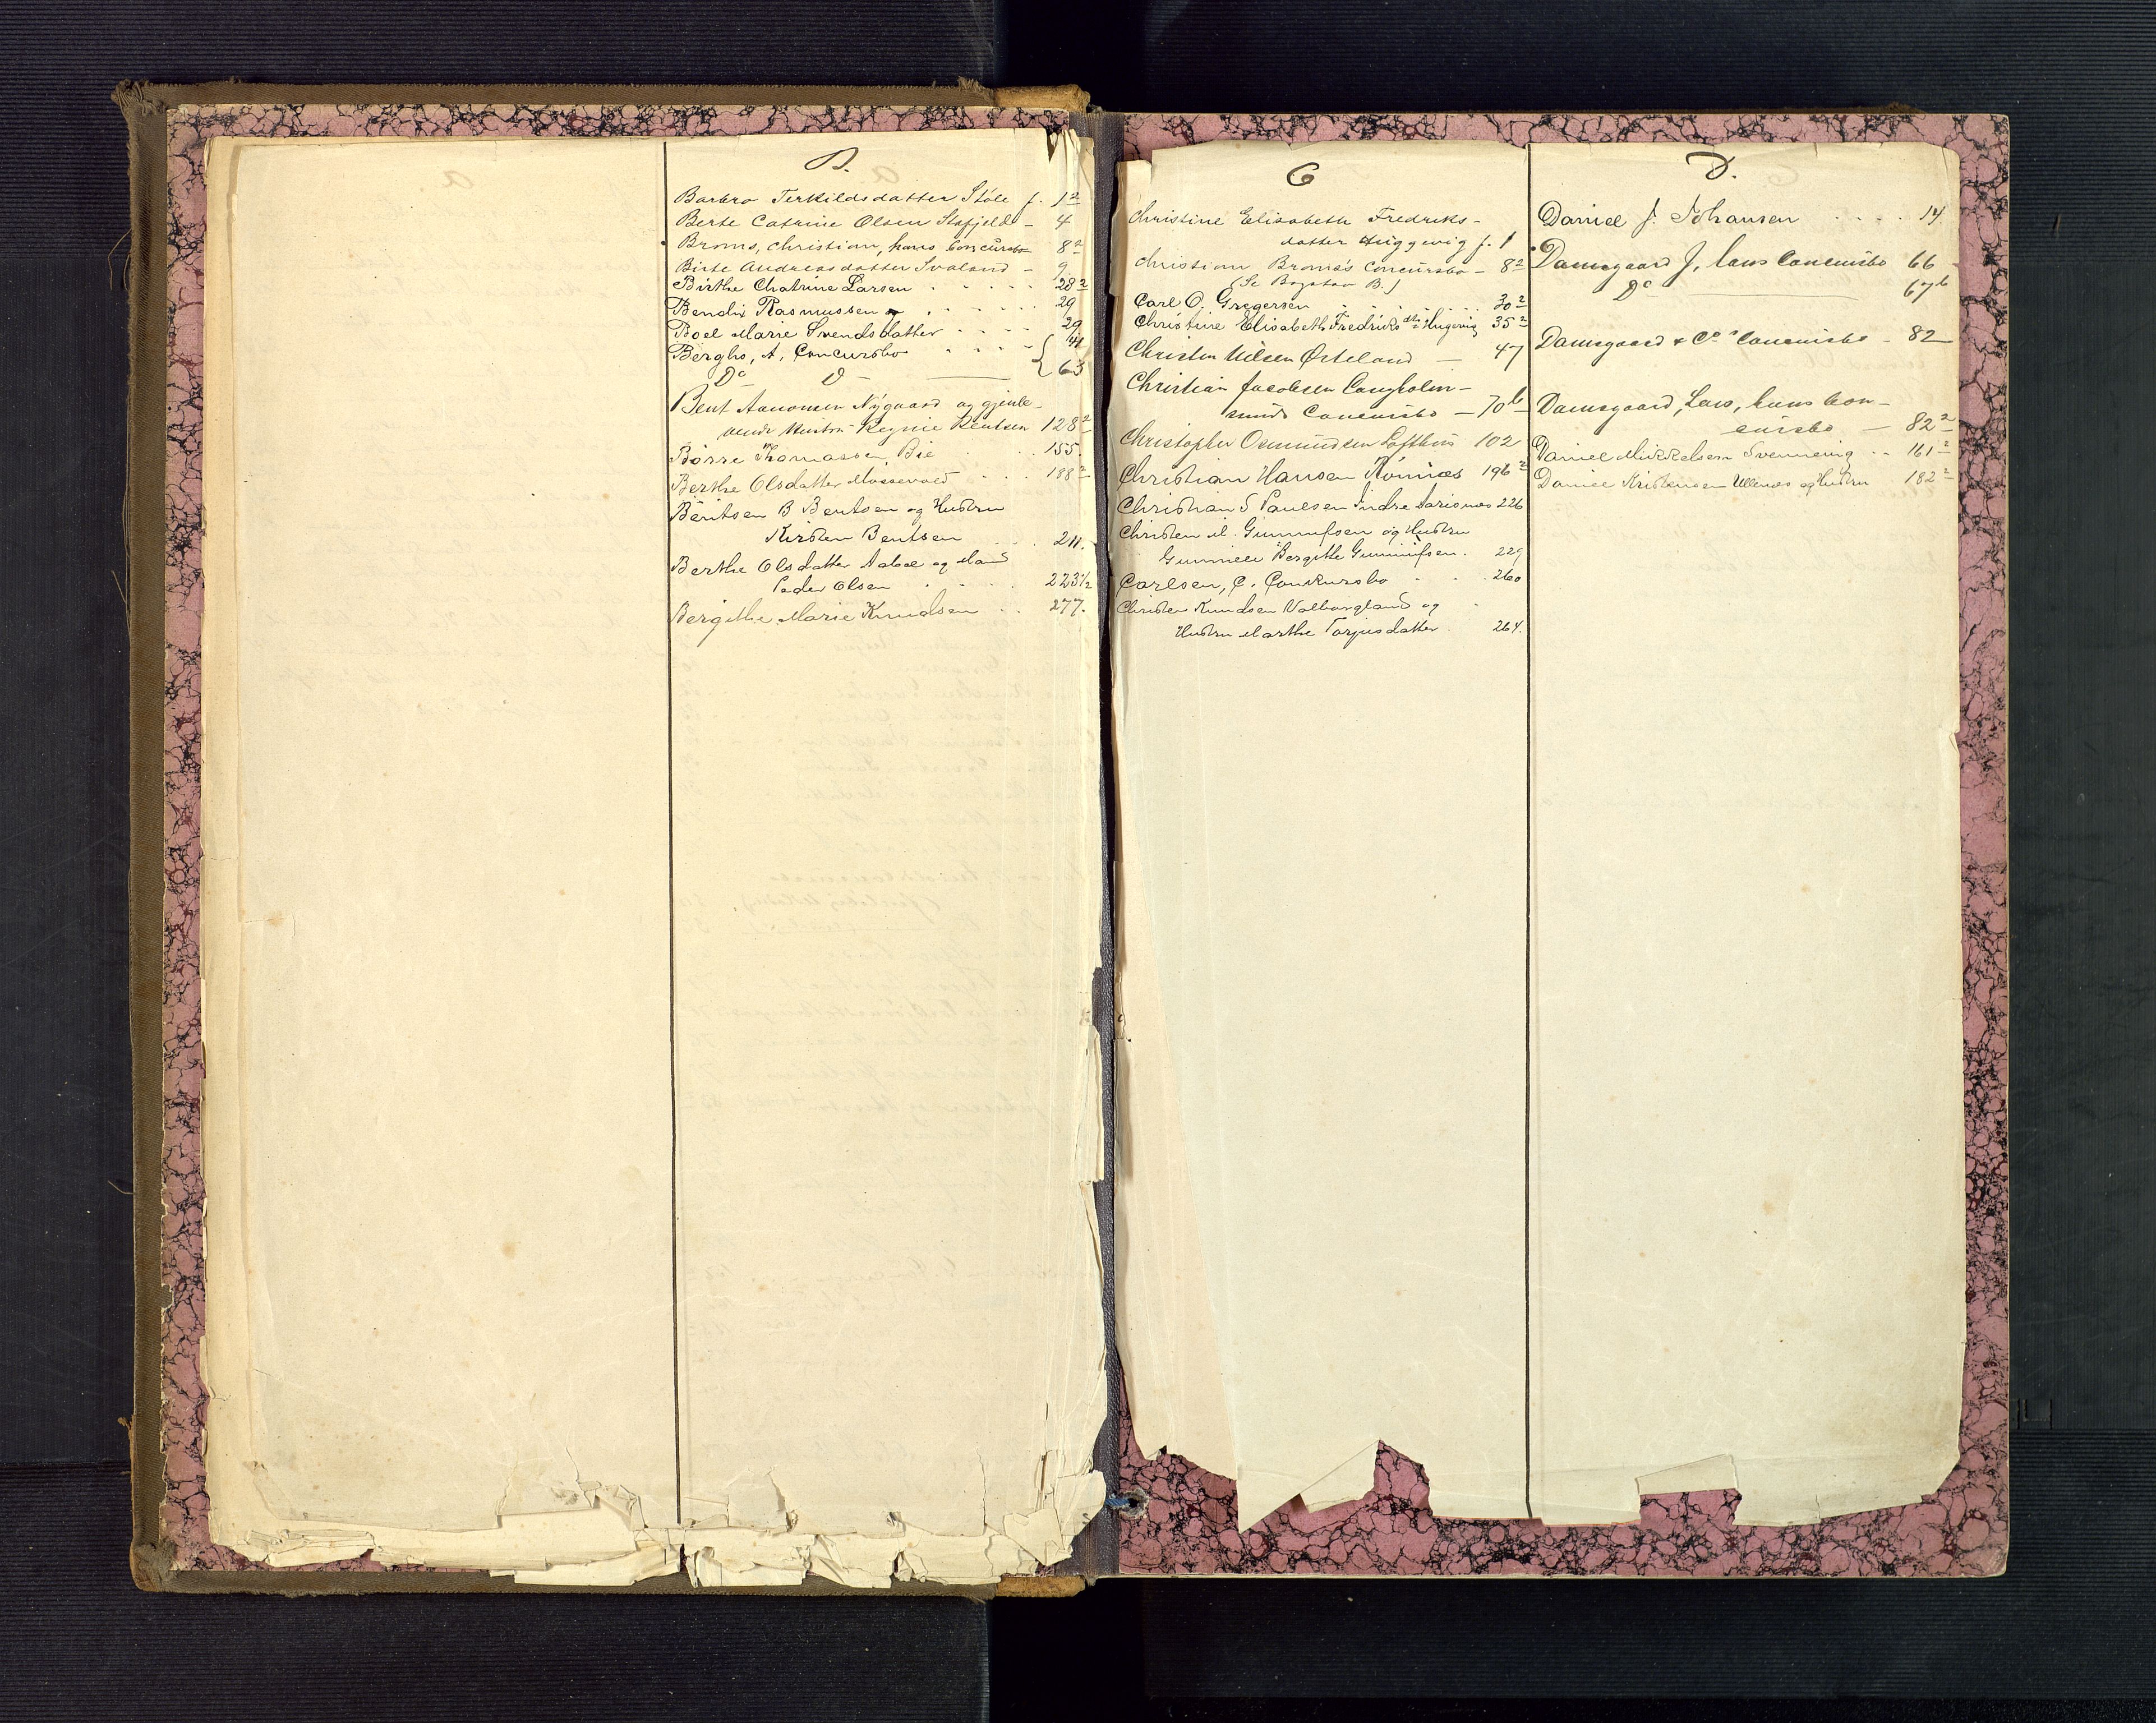 B.
Barbro Terkildsdatter Støle f. 1²
Berte Catrine Olsen Stofjeld - 4
Broms, Christian, hans Concursbo 8²
Birte Andreasdatter Svaland - 9
Birthe Chatrine Larsen . . . . . 28²
Bendix Rasmussen . . . . 29
Boel Marie Svendsdatter . . . . 29
Berghs, A, Concursbo . . . . 41
Do D - 63
Bent Aanonsen Nygaard og gjenle-
vende Hustru Regine Bentsen 128²
Børre Thomassen Bie . . . 155.
Berthe Olsdatter Mossevold . . . 188²
Bentsen B Bentsen og Hustru
Kirsten Bentsen . . . 211.
Berthe Olsdatter Aabøe og Mand
Peder Olsen . . . . 223½
Bergithe Marie Knudsen . . . 277.
C
Christine Elisabeth Fredriks-
datter Huggevig f. 1
Christian Broms's Concursbo - 8²
(Se Bogstav B.)
Carl O. Gregersen . . . . . 30²
Christine Elisabeth Fredriksdtr Hugevig 35²
Christen Nilsen Østeland - 47
Christian Jacobsen Langholm-
sunds Concursbo - 70b
Christopher Osmundsen Lofthus 102
Christian Hansen Rømnæs 196²
Christian S Paulsen Indre Aarisnæs 226
Christen M. Gunnufsen og Hustru
Gunnild Bergitte Gunnufsen. 229
Carlsen, C. Konkursbo . . . 260
Christen Knudsen Valborgland og
Hustru Marthe Torjusdatter. 264.
D.
Daniel J. Johansen . . . . 14.
Damsgaard J, Lars Concursbo 66
Do 67b
Damsgaard & Co's Concursbo - 82
Damsgaard, Lars, hans Con-
cursbo - 82²
Daniel Mikkelsen Svennevig . . 161²
Daniel Kristensen Ullenæs og Hustru 182²